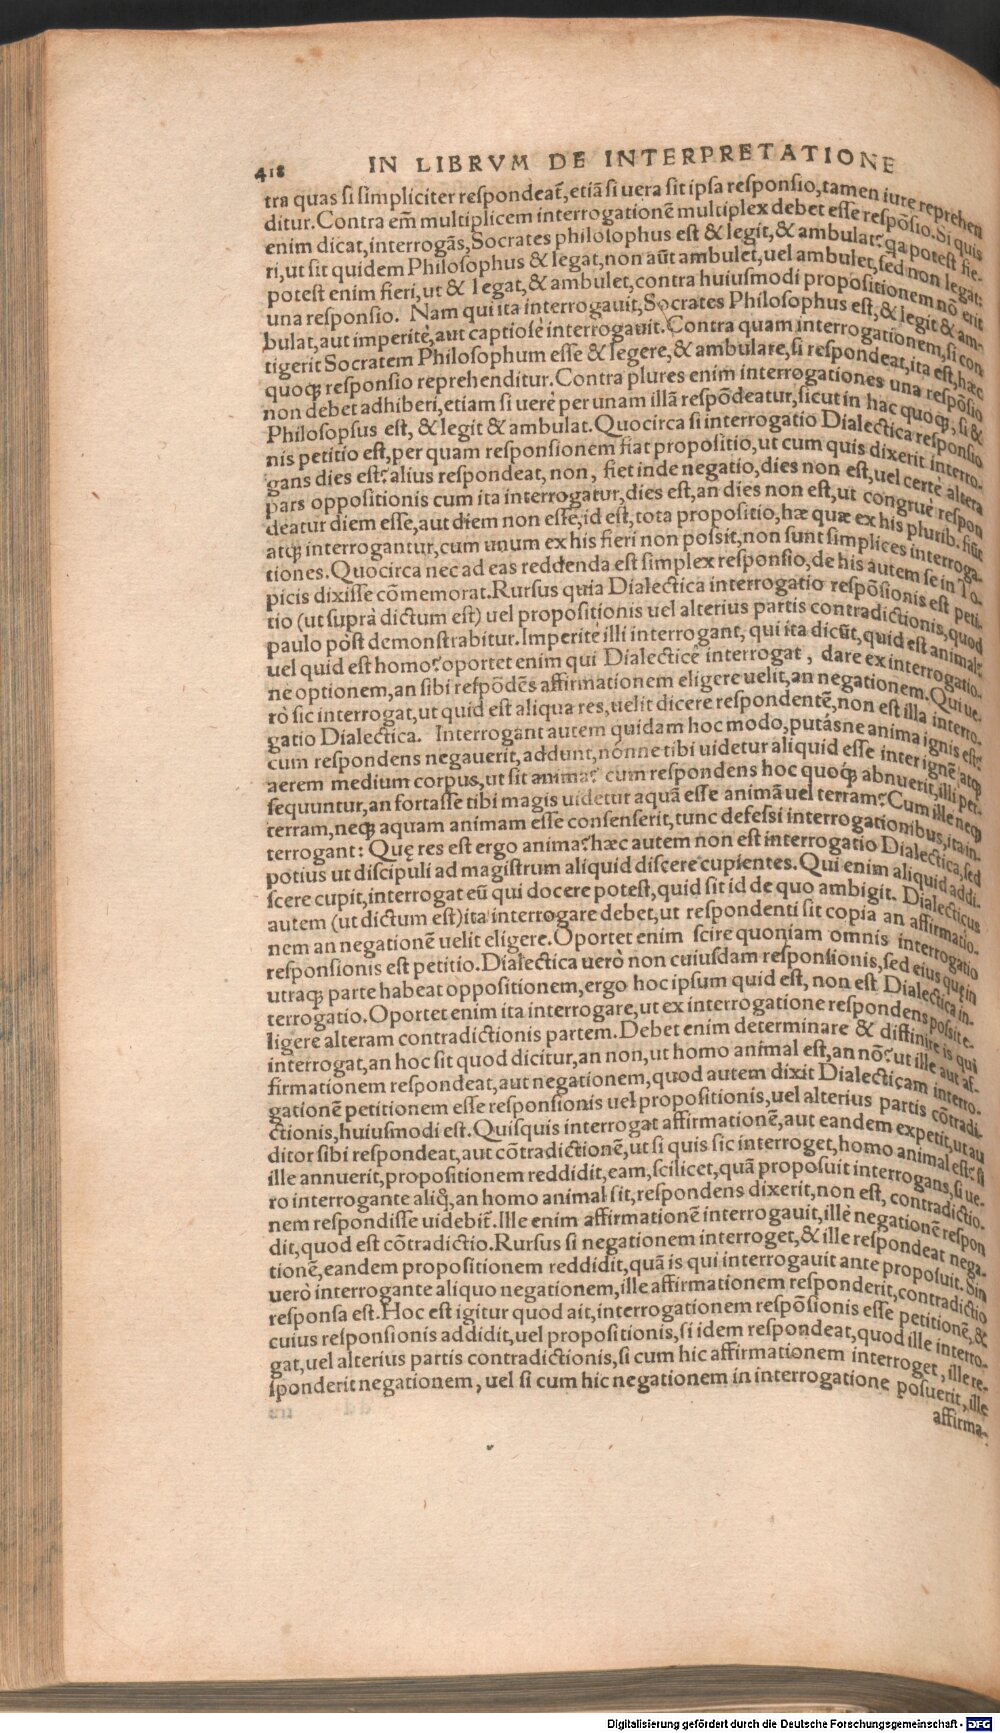 418 IN LIBRVM DE INTERPRETATIONE
tra quas si simpliciter respondeat̃, etiã si uera sit ipsa responsio, tamen iure reprehen
ditur. Contra em̃ multiplicem interrogationẽ multiplex debet esse respõsio. Si quis
enim dicat, interrogãs, Socrates philosophus est & legit, & ambulat? qa potest fie-
ri, ut sit quidem Philosophus & legat, non aũt ambulet, uel ambulet, sed non legat:
potest enim fieri, ut & legat, & ambulet, contra huiusmodi propositionem nõ erit
una responsio. Nam qui ita interrogauit, Socrates Philosophus est, & legit & am-
bulat, aut imperitè, aut captiosè interrogauit. Contra quam interrogationem, si con
tigerit Socratem Philosophum esse & legere, & ambulare, si respondeat, ita est, hæc
quoq; responsio reprehenditur. Contra plures enim interrogationes una respõsio
non debet adhiberi, etiam si uerè per unam illã respõdeatur, sicut in hac quoq;, si &
Philosopsus est, & legit & ambulat. Quocirca si interrogatio Dialectica responsio
nis petitio est, per quam responsionem fiat propositio, ut cum quis dixerit interro-
gans dies est? alius respondeat, non, fiet inde negatio, dies non est, uel certè altera
pars oppositionis cum ita interrogatur, dies est, an dies non est, ut congruè respon
deatur diem esse, aut diem non esse, id est, tota propositio, hæ quæ ex his plurib. fiũt
atq; interrogantur, cum unum ex his fieri non possit, non sunt simplices interroga-
tiones. Quocirca nec ad eas reddenda est simplex responsio, de his autem se in To-
picis dixisse cõmemorat. Rursus quia Dialectica interrogatio respõsionis est peti-
tio (ut suprà dictum est) uel propositionis uel alterius partis contradictionis, quod
paulo pòst demonstrabitur. Imperitè illi interrogant, qui ita dicũt, quid est animal?
uel quid est homo? oportet enim qui Dialecticè interrogat, dare ex interrogatio-
ne optionem, an sibi respõdẽs affirmationem eligere uelit, an negationem. Qui ue-
rò sic interrogat, ut quid est aliqua res, uelit dicere respondentẽ, non est illa interro-
gatio Dialectica. Interrogant autem quidam hoc modo, putásne anima ignis est?
cum respondens negauerit, addunt, nónne tibi uidetur aliquid esse inter ignẽ atq;
aerem medium corpus, ut sit anima? cum respondens hoc quoq; abnuerit, illi per-
sequuntur, an fortasse tibi magis uidetur aquã esse animã uel terram? Cum ille neq;
terram, neq; aquam animam esse consenserit, tunc defessi interrogationibus, ita in-
terrogant: Quę res est ergo anima? hæc autem non est interrogatio Dialectica, sed
potius ut discipuli ad magistrum aliquid discere cupientes. Qui enim aliquid addi-
scere cupit, interrogat eũ qui docere potest, quid sit id de quo ambigit. Dialecticus
autem (ut dictum est) ita interrogare debet, ut respondenti sit copia an affirmatio-
nem an negationẽ uelit eligere. Oportet enim scire quoniam omnis interrogatio
responsionis est petitio. Dialectica uerò non cuiusdam responsionis, sed eius quę in
utraq; parte habeat oppositionem, ergo hoc ipsum quid est, non est Dialectica in-
terrogatio. Oportet enim ita interrogare, ut ex interrogatione respondens possit e-
ligere alteram contradictionis partem. Debet enim determinare & diffinire is qui
interrogat, an hoc sit quod dicitur, an non, ut homo animal est, an nõ? ut ille aut af-
firmationem respondeat, aut negationem, quod autem dixit Dialecticam interro-
gationẽ petitionem esse responsionis uel propositionis, uel alterius partis cõtradi-
ctionis, huiusmodi est. Quisquis interrogat affirmationẽ, aut eandem expetit, ut au
ditor sibi respondeat, aut cõtradictionẽ, ut si quis sic interroget, homo animal est? si
ille annuerit, propositionem reddidit, eam, scilicet, quã proposuit interrogans, si ue-
ro interrogante aliq̃, an homo animal sit, respondens dixerit, non est, contradictio-
nem respondisse uidebit̃. Ille enim affirmationẽ interrogauit, ille negationẽ respon
dit, quod est cõtradictio. Rursus si negationem interroget, & ille respondeat nega-
tionẽ, eandem propositionem reddidit, quã is qui interrogauit ante proposuit. Sin
uerò interrogante aliquo negationem, ille affirmationem responderit, contradictio
responsa est. Hoc est igitur quod ait, interrogationem respõsionis esse petitionẽ, &
cuius responsionis addidit, uel propositionis, si idem respondeat, quod ille interro-
gat, uel alterius partis contradictionis, si cum hic affirmationem interroget, ille re-
sponderit negationem, uel si cum hic negationem in interrogatione posuerit, ille
affirma-
Digitalisierung gefördert durch die Deutsche Forschungsgemeinschaft - DFG